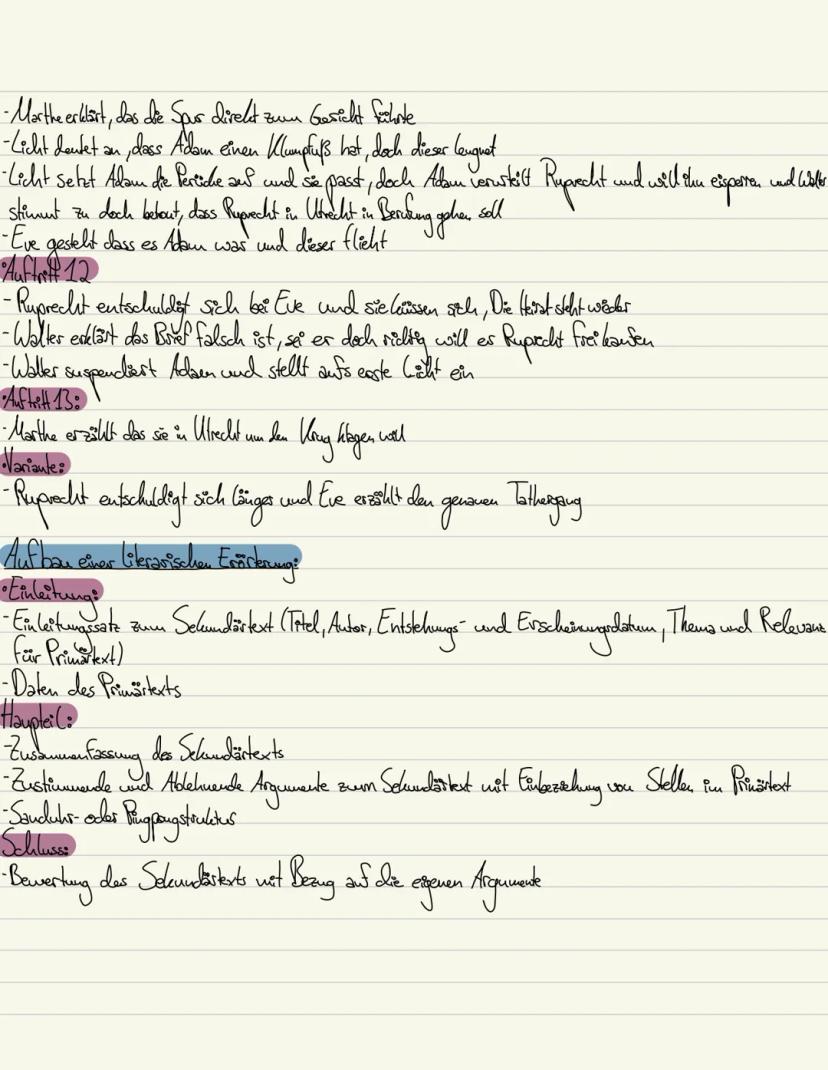 -Marthe erklärt, das die Spur direkt zum Gesicht führte
-Licht deutet an, dass Adam einen Klumpfuß hat, doch dieser leugnet
-Licht setzt Adam die Perücke auf und sie passt, doch Adam verurteilt Ruprecht und will ihn eisperren und Walter
stimmt zu doch betout, dass Ruprecht in Utrecht in Berufung gehen soll
-Eve gesteht dass es Adam war und dieser flieht
•Auftritt 12
-Ruprecht entschuldigt sich bei Eve und sie küssen sich, Die Heirat steht wieder
-Walter erklärt das Brief falsch ist, sei er doch richtig will er Ruprecht freikaufen
-Walter suspendiert Adam und stellt aufs erste Licht ein
•Auftritt 13:
-Marthe erzählt das sie in Utrecht um den Krug klagen will
•Variante:
-Ruprecht entschuldigt sich länger und Eve erzählt den genauen Tathergang
Aufbau einer literarischen Erörterung:
•Einleitung:
-Einleitungssatz zum Sekundärtext (Titel, Autor, Entstehungs- und Erscheinungsdatum, Thema und Relevanz
für Primärtext)
-Daten des Primärtexts
Haupteil:
-Zusammenfassung des Sekundärtexts
-Zustimmende und Ablehnende Argumente zum Sekundärtext mit Einbeziehung von Stellen im Primärtext
-Sanduhr- oder Pingpongstruktur
Schluss:
-Bewertung des Sekundärtexts mit Bezug auf die eigenen Argumente